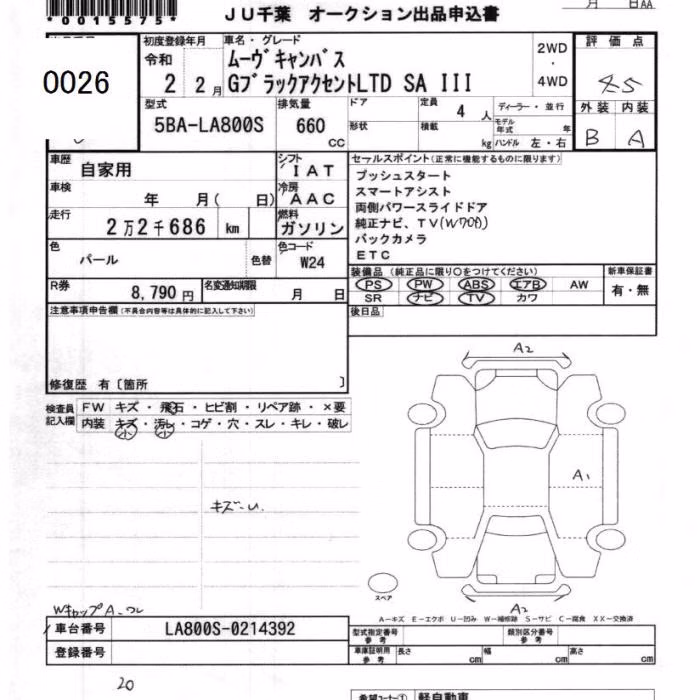 *0015575*
JU千葉 オークション出品申込書
月 日AA
0026
初度登録年月
令和
2 2月
車名・グレード
ムーヴキャンバス
GブラックアクセントLTD SA III
2WD
・
4WD
評価点
4.5
外装 内装
B A
型式
5BA-LA800S
排気量
660
CC
ドア
形状
定員
4 人
積載
kg
ディーラー・並行
モデル年式 年
ハンドル 左・右
車歴
自家用
シフト
IAT
車検
年 月( 日)
冷房
AAC
走行
2万2千686 km
燃料
ガソリン
色
パール
色替
色コード
W24
R券
8,790円
名変通知期限
月 日
セールスポイント(正常に機能するものに限ります)
プッシュスタート
スマートアシスト
両側パワースライドドア
純正ナビ、TV(W70B)
バックカメラ
ETC
装備品(純正品に限り○をつけてください)
PS PW ABS エアB AW
SR ナビ TV カワ
新車保証書
有・無
後日品
注意事項申告欄(不具合内容等は具体的に記入して下さい)
修復歴 有〔箇所 〕
検査員記入欄
FW キズ・飛石・ヒビ割・リペア跡・×要
内装 キズ・汚レ・コゲ・穴・スレ・キレ・破レ
小 小
キズ小
A2
A1
A2
スペア
WキャップA、ワレ
A-キズ E-エクボ U-凹み W-補修跡 S-サビ C-腐食 XX-交換済
車台番号
LA800S-0214392
登録番号
型式指定番号参考
類別区分番号参考
車庫証明用参考
長さ cm
幅 cm
高さ cm
20
希望コーナー① 軽自動車